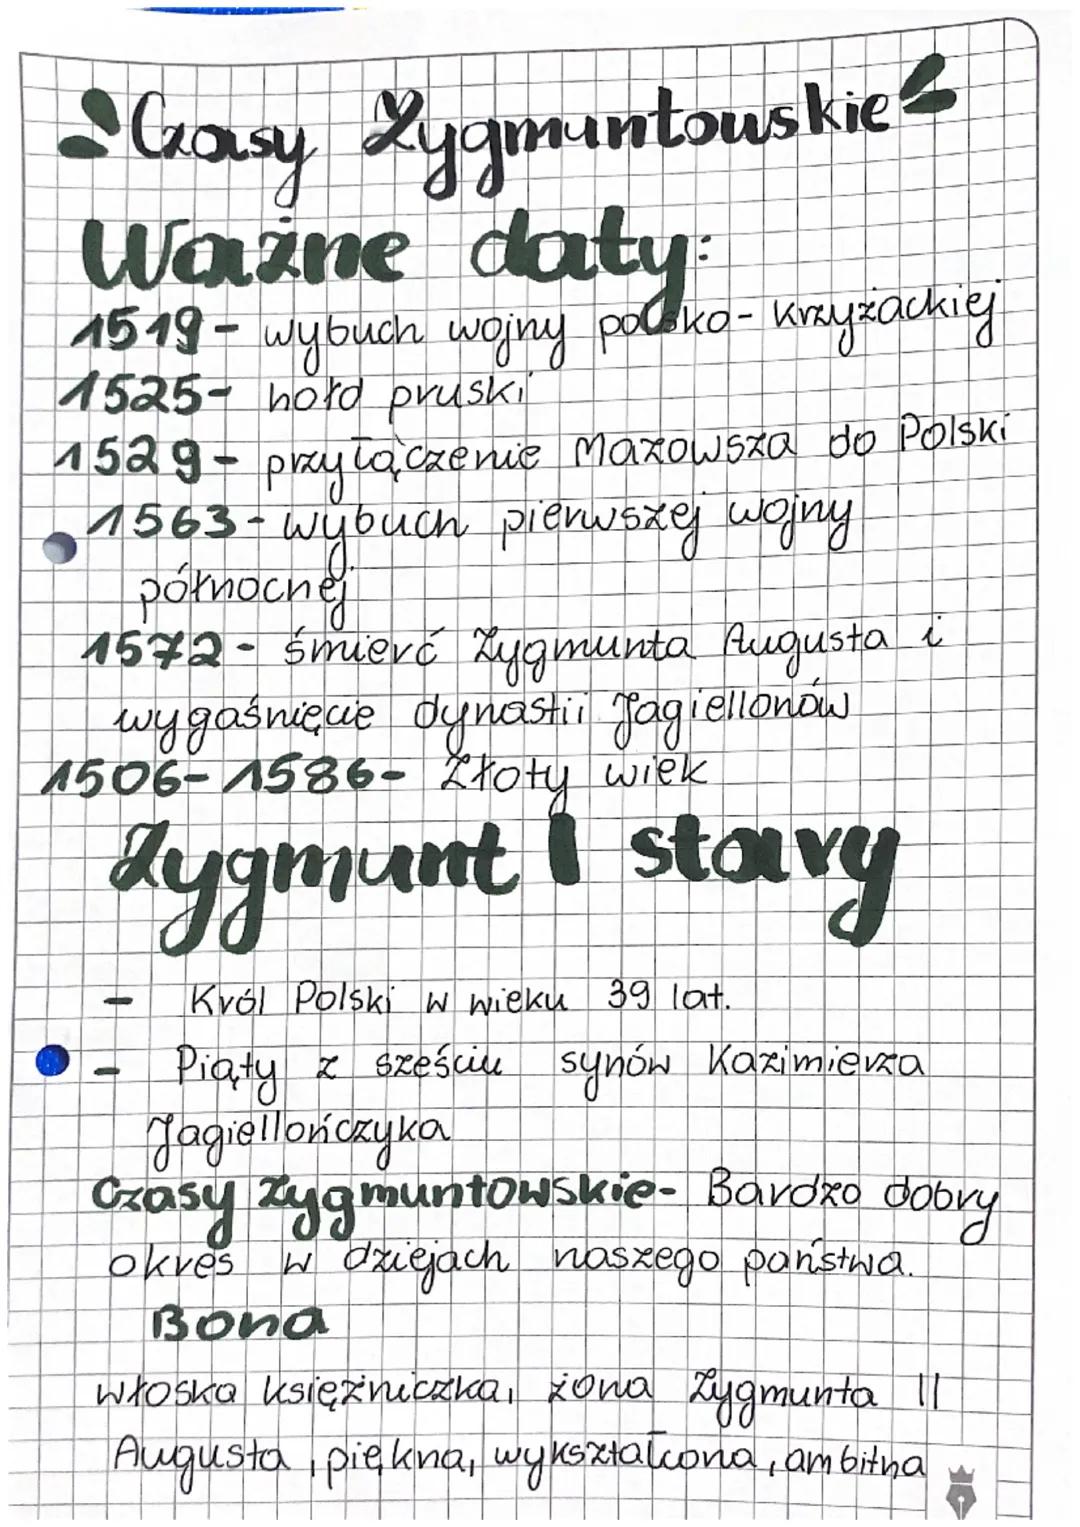 Czasy Zygmuntowskie
Ważne daty:
1519- wybuch wojny polsko- krzyżackiej
1525- hołd pruski
1529- przyłączenie Mazowsza do Polski
1563- wybuch pierwszej wojny
północnej.
1572- śmierć Zygmunta Augusta i
wygaśnięcie dynastii Jagiellonów
1506-1586- Złoty wiek
Zygmunt I stary
- Król Polski w wieku 39 lat.
- Piąty z sześciu synów Kazimierza
Jagiellończyka
Czasy Zygmuntowskie- Bardzo dobry
okres w dziejach naszego państwa.
Bona
włoska księżniczka, żona Zygmunta II
Augusta, piękna, wykształcona, ambitna